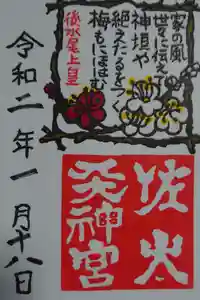 家の風
世々に伝え
神垣や
絶えたるをつぐ
梅もにほはむ
後水尾上皇
佐太
天神宮
令和二年一月十八日